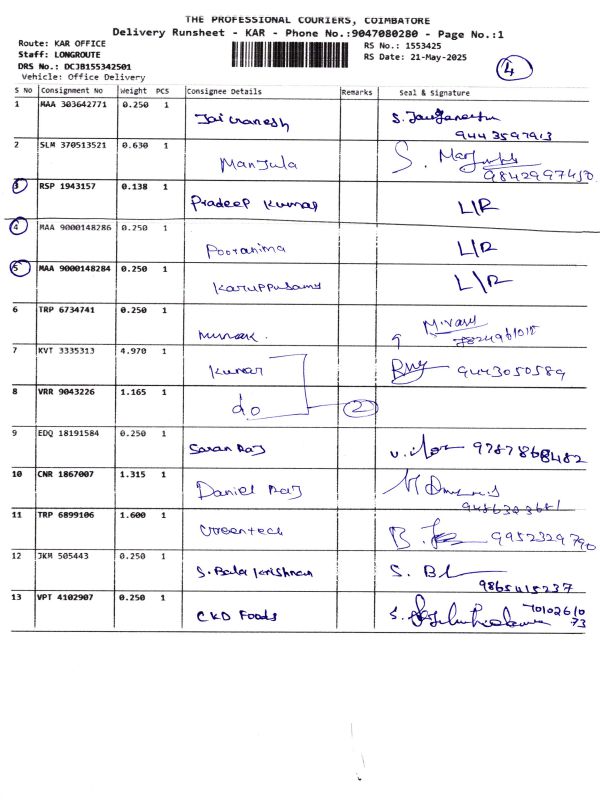 THE PROFESSIONAL COURIERS, COIMBATORE
Delivery Runsheet - KAR - Phone No.:9047080280 - Page No.:1
Route: KAR OFFICE
Staff: LONGROUTE
DRS No.: DCJB155342501
Vehicle: Office Delivery
RS No.: 1553425
RS Date: 21-May-2025
4
S No Consignment No Weight PCS Consignee Details Remarks Seal & Signature
1 MAA 303642771 0.250 1 Jai Ganesh S.
9443597913
2 SLM 370513521 0.630 1 Manjula S.
9842997450
3 RSP 1943157 0.138 1 Pradeep Kumar L/R
4 MAA 9000148286 0.250 1 Poornima L/R
5 MAA 9000148284 0.250 1 Karuppusamy L/R
6 TRP 6734741 0.250 1
7 KVT 3335313 4.970 1 Kumar 9443050589
8 VRR 9043226 1.165 1 do 2
9 EDQ 18191584 0.250 1 Saran Raj 9787868482
10 CNR 1867007 1.315 1 Daniel Raj
9486303681
11 TRP 6899106 1.600 1 Greentech B. 9952329790
12 JKM 505443 0.250 1 S. Bala Krishnan S. BL
9865415237
13 VPT 4102907 0.250 1 CKD Foods S. 70102610
73